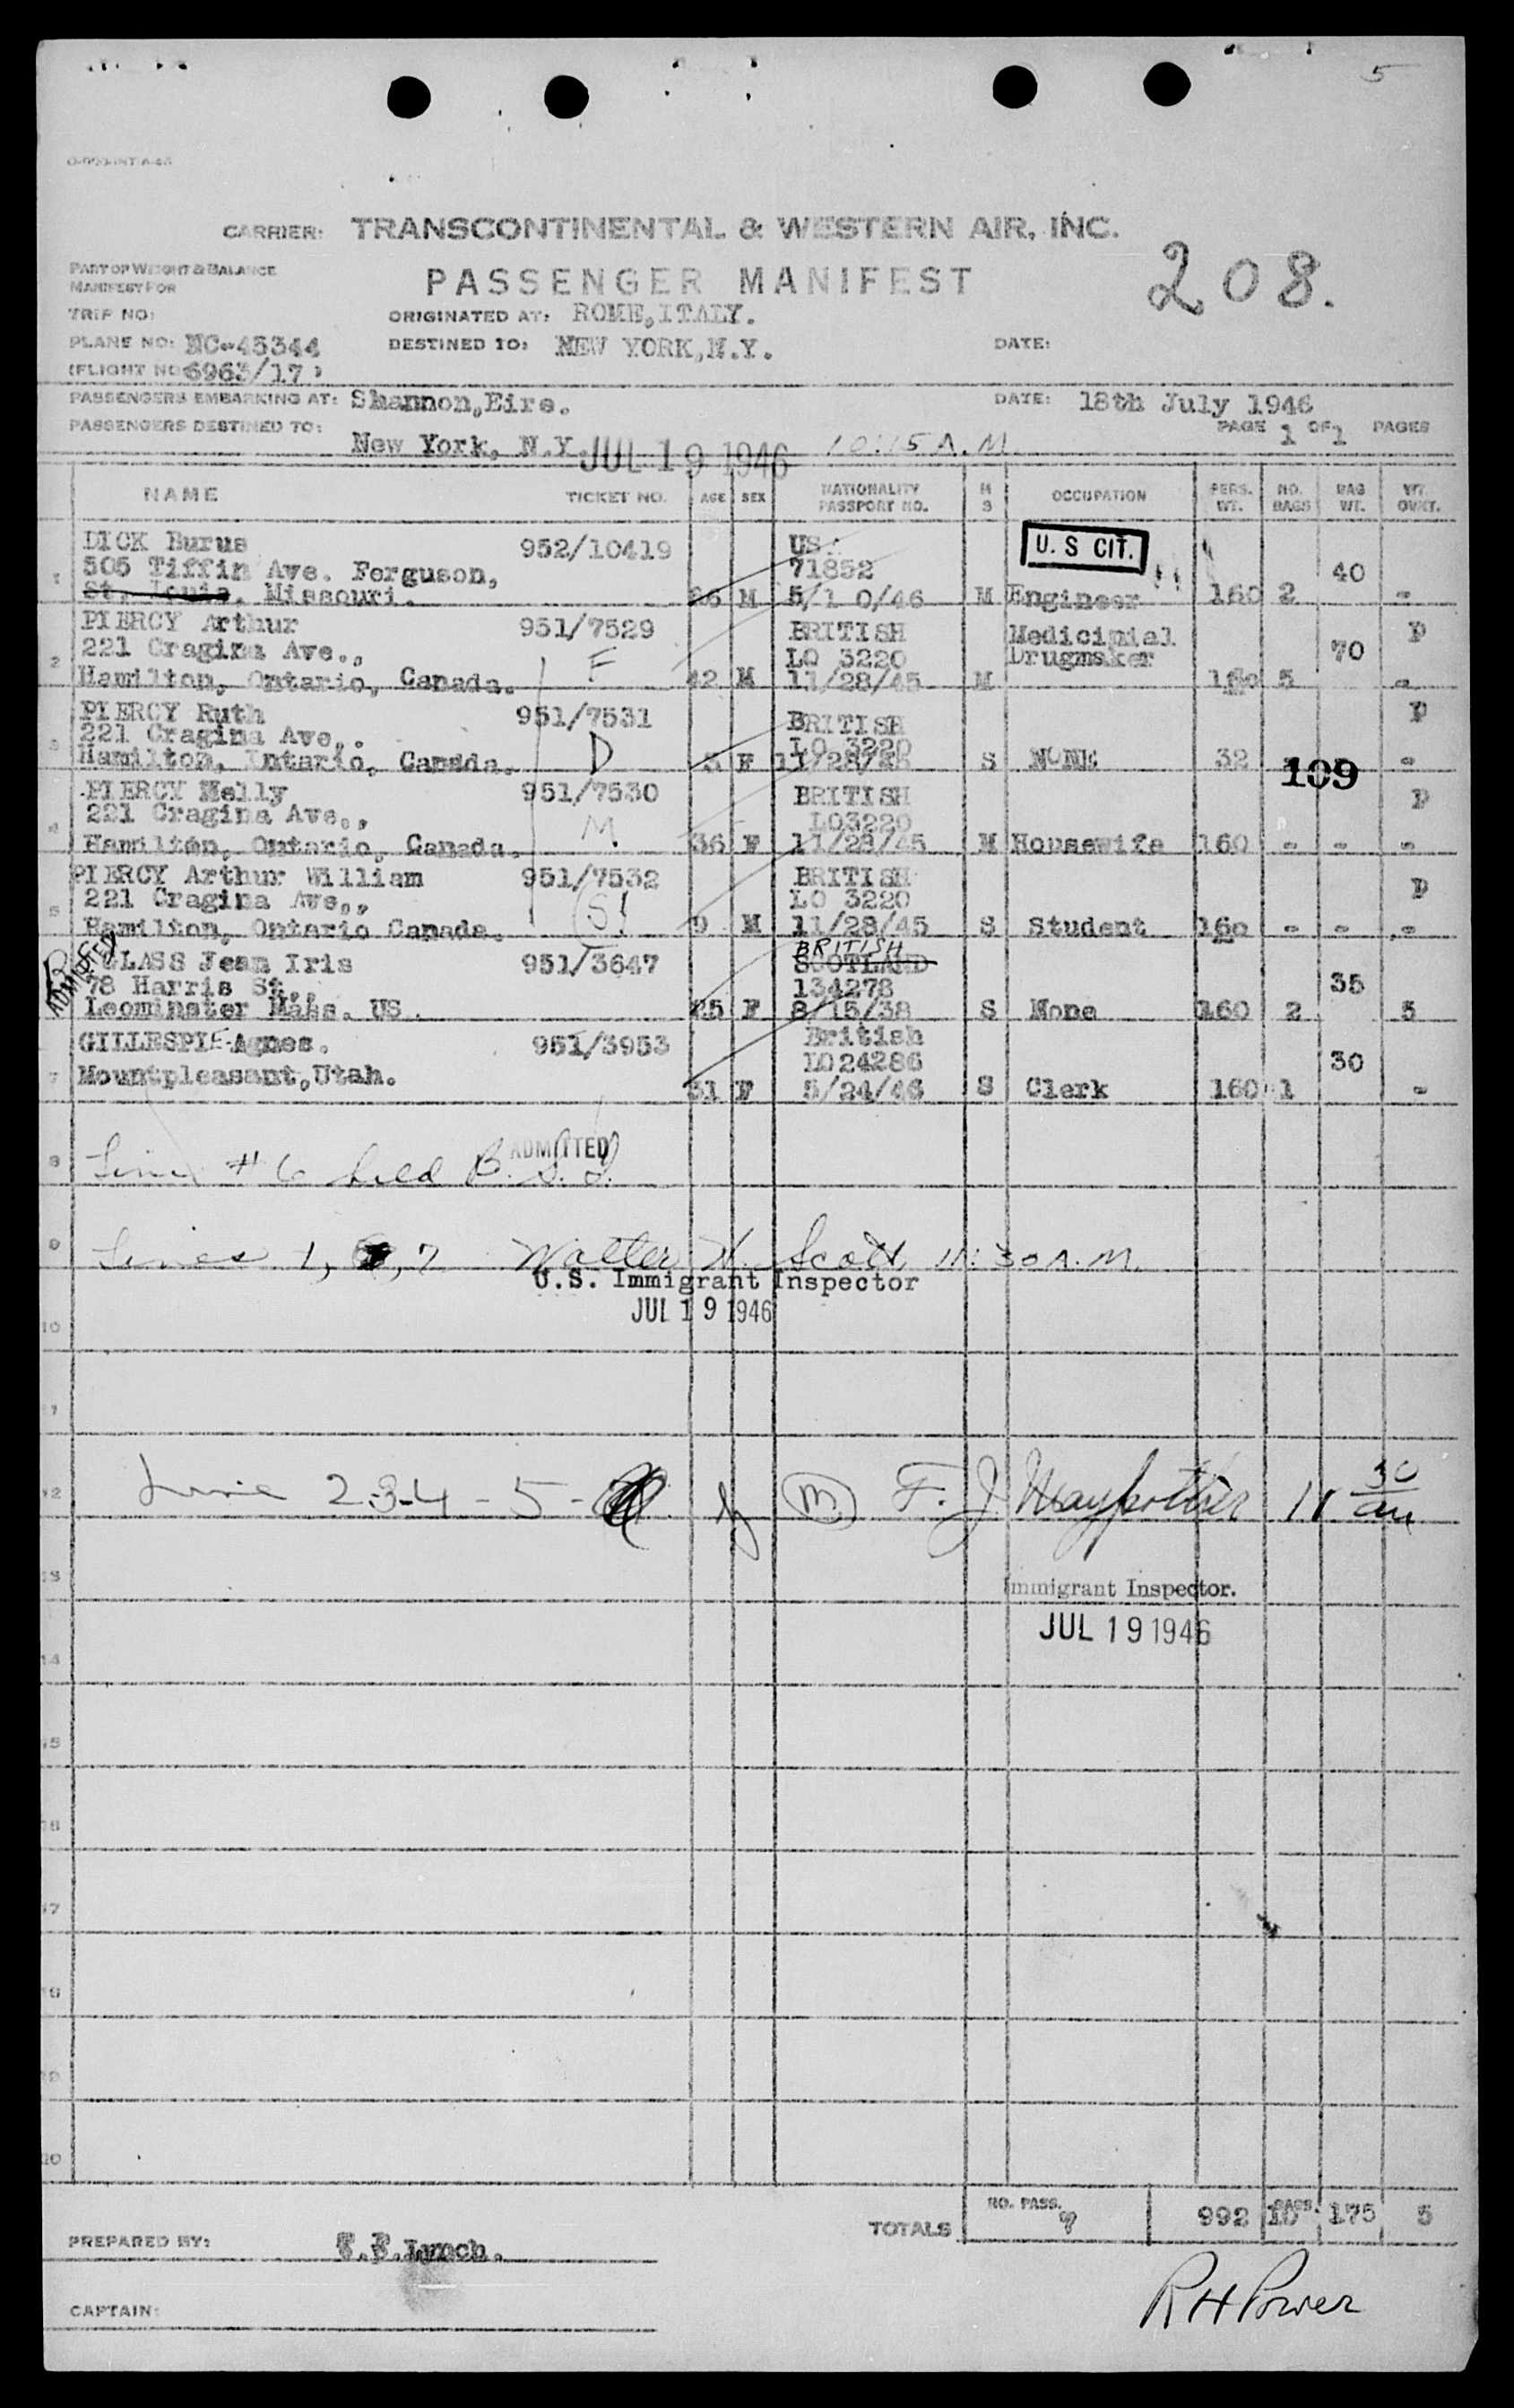 5
CARRIER: TRANSCONTINENTAL & WESTERN AIR, INC.
PART OF WEIGHT & BALANCE
MANIFEST FOR
PASSENGER MANIFEST
208.
TRIP NO:
ORIGINATED AT: ROME,ITALY.
PLANE NO: NC-45344
DESTINED TO: NEW YORK,N.Y.
DATE:
(FLIGHT NO 6963/17)
PASSENGERS EMBARKING AT: Shannon,Eire.
DATE: 18th July 1946
PASSENGERS DESTINED TO: New York, N.Y. JUL 19 1946 10:15 A.M.
PAGE 1 OF 1 PAGES
NAME TICKET NO. AGE SEX NATIONALITY PASSPORT NO. M S OCCUPATION PERS. WT. NO. BAGS BAG WT. WT. OVWT.
DICK Burus 952/10419 US. U. S CIT.
505 Tiffin Ave. Ferguson, 71852 40
1 St. Louis, Missouri. 26 M 5/1 0/46 M Engineer 160 2 -
PIERCY Arthur 951/7529 BRITISH Medicinial P
2 221 Cragina Ave., F LO 3220 Drugmaker 70
Hamilton, Ontario, Canada. 42 M 11/28/45 M 160 5 -
PIERCY Ruth 951/7531 BRITISH P
3 221 Cragina Ave,. D LO 3220
Hamilton, Ontario, Canada. F S NONE 32 109 -
PIERCY Nelly 951/7530 BRITISH P
4 221 Cragina Ave., M LO3220
Hamilton, Ontario, Canada. 36 F 11/28/45 M Housewife 160 - - -
PIERCY Arthur William 951/7532 BRITISH P
5 221 Cragina Ave., S LO 3220
Hamilton, Ontario Canada. 9 M 11/28/45 S Student 160 - - -
BRITISH
ADMITTED GLASS Jean Iris 951/3647 SCOTLAND
78 Harris St., 134278 35
Leominster Mass. US. 25 F 8/15/38 S None 160 2 5
GILLESPIE Agnes. 951/3953 British
LO24286 30
7 Mountpleasant,Utah. 31 F 5/24/46 S Clerk 160 1 -
ADMITTED
8 Line #6 held B.S.I.
9 Lines 1, 7 Walter H. Scott 11:30 A.M.
U.S. Immigrant Inspector
JUL 19 1946
10
11
12 Line 2-3-4-5- by M F. J. 11 30 am
13 Immigrant Inspector.
JUL 19 1946
14
15
16
17
18
19
20
TOTALS NO. PASS. 7 992 BAGS. 10 175 5
PREPARED BY: Lynch.
R H Power
CAPTAIN: